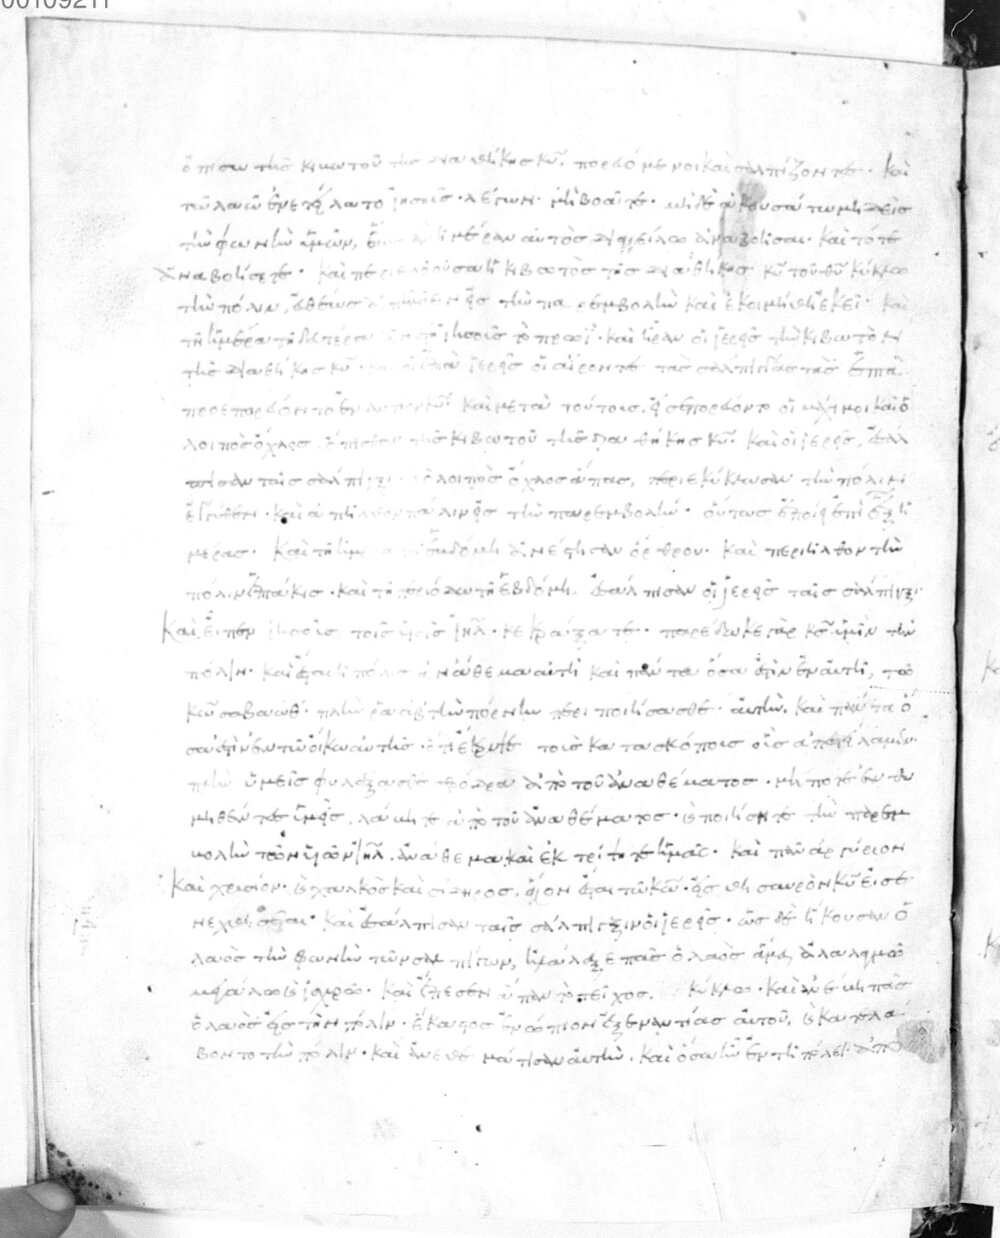 00109211
ὀπίσω τῆς κιβωτοῦ τῆς διαθήκης κυ, πορευόμενοι καὶ σαλπίζοντες· καὶ
τῶ λαῶ ἐνετείλατο ἰησοῦς λέγων· μὴ βοᾶτε· μηδὲ ἀκουσάτω μηδεὶς
τὴν φωνὴν ὑμῶν, ἕως ἂν ἡμέραν αὐτὸς διαγγείλω ἀναβοῆσαι· καὶ τότε
ἀναβοήσετε· καὶ περιελθοῦσα ἡ κιβωτὸς τῆς διαθήκης κυ τοῦ θυ κύκλω
τὴν πόλιν, εὐθέως ἀπῆλθεν εἰς τὴν παρεμβολὴν καὶ ἐκοιμήθη ἐκεῖ· καὶ
τῆ ἡμέρα τῆ δευτέρα ἀνέστη ἰησοῦς τὸ πρωΐ· καὶ ἦραν οἱ ἱερεῖς τὴν κιβωτὸν
τῆς διαθήκης κυ· καὶ οἱ ἑπτὰ ἱερεῖς οἱ αἴροντες τὰς σάλπιγγας τὰς ἑπτὰ
προεπορεύοντο ἐναντίον κυ· καὶ μετὰ τούτοις εἰσεπορεύοντο οἱ μάχιμοι καὶ ὁ
λοιπὸς ὄχλος ὄπισθεν τῆς κιβωτοῦ τῆς διαθήκης κυ· καὶ οἱ ἱερεῖς ἐσάλ
πισαν ταῖς σάλπιγξι· ὁ λοιπὸς ὄχλος ἅπας, περιεκύκλωσαν τὴν πόλιν
ἐγγύθεν· καὶ ἀπῆλθον πάλιν εἰς τὴν παρεμβολήν· οὕτως ἐποίει ἐπὶ ἓξ ἡ
μέρας· καὶ τῆ ἡμέρα τῆ ἑβδόμη ἀνέστησαν ὄρθρου· καὶ περιῆλθον τὴν
πόλιν ἑπτάκις· καὶ τῆ περιόδω τῆ ἑβδόμη ἐσάλπισαν οἱ ἱερεῖς ταῖς σάλπιγξι·
καὶ εἶπεν ἰησοῦς τοῖς υἱοῖς ιηλ· κεκράξατε· παρέδωκε γὰρ κς ὑμῖν τὴν
πόλιν· καὶ ἔσται ἡ πόλις ἀνάθεμα αὐτὴ καὶ πάντα ὅσα ἐστὶν ἐν αὐτῆ, τῶ
κω σαβαώθ· πλὴν ῥαὰβ τὴν πόρνην περιποιήσασθε αὐτήν, καὶ πάντα ὅ
σα ἐστὶν ἐν τῶ οἴκω αὐτῆς· ὅτι ἔκρυψε τοὺς κατασκόπους οὓς ἀπεστείλαμεν·
πλὴν ὑμεῖς φυλάξασθε σφόδρα ἀπὸ τοῦ ἀναθέματος· μήποτε ἐνθυ
μηθέντες ὑμεῖς, λάβητε ἀπὸ τοῦ ἀναθέματος· καὶ ποιήσητε τὴν παρεμ
βολὴν τῶν υἱῶν ιηλ ἀνάθεμα, καὶ ἐκτρίψητε ἡμᾶς· καὶ πᾶν ἀργύριον
καὶ χρυσίον· καὶ χαλκὸς καὶ σίδηρος, ἅγιον ἔσται τῶ κω· εἰς θησαυρὸν κυ εἰσε
νεχθήσεται· καὶ ἐσάλπισαν ταῖς σάλπιγξιν οἱ ἱερεῖς· ὡς δὲ ἤκουσεν ὁ
λαὸς τὴν φωνὴν τῶν σαλπίγγων, ἠλάλαξε πᾶς ὁ λαὸς ἅμα ἀλαλαγμῶ
μεγάλω καὶ ἰσχυρῶ· καὶ ἔπεσεν ἅπαν τὸ τεῖχος κύκλω· καὶ ἀνέβη πᾶς
ὁ λαὸς εἰς τὴν πόλιν· ἕκαστος ἐνώπιον ἐξεναντίας αὐτοῦ, καὶ κατελά
βοντο τὴν πόλιν· καὶ ἀνεθεμάτισαν αὐτήν· καὶ ὅσα ἦν ἐν τῆ πόλει· ἀπὸ